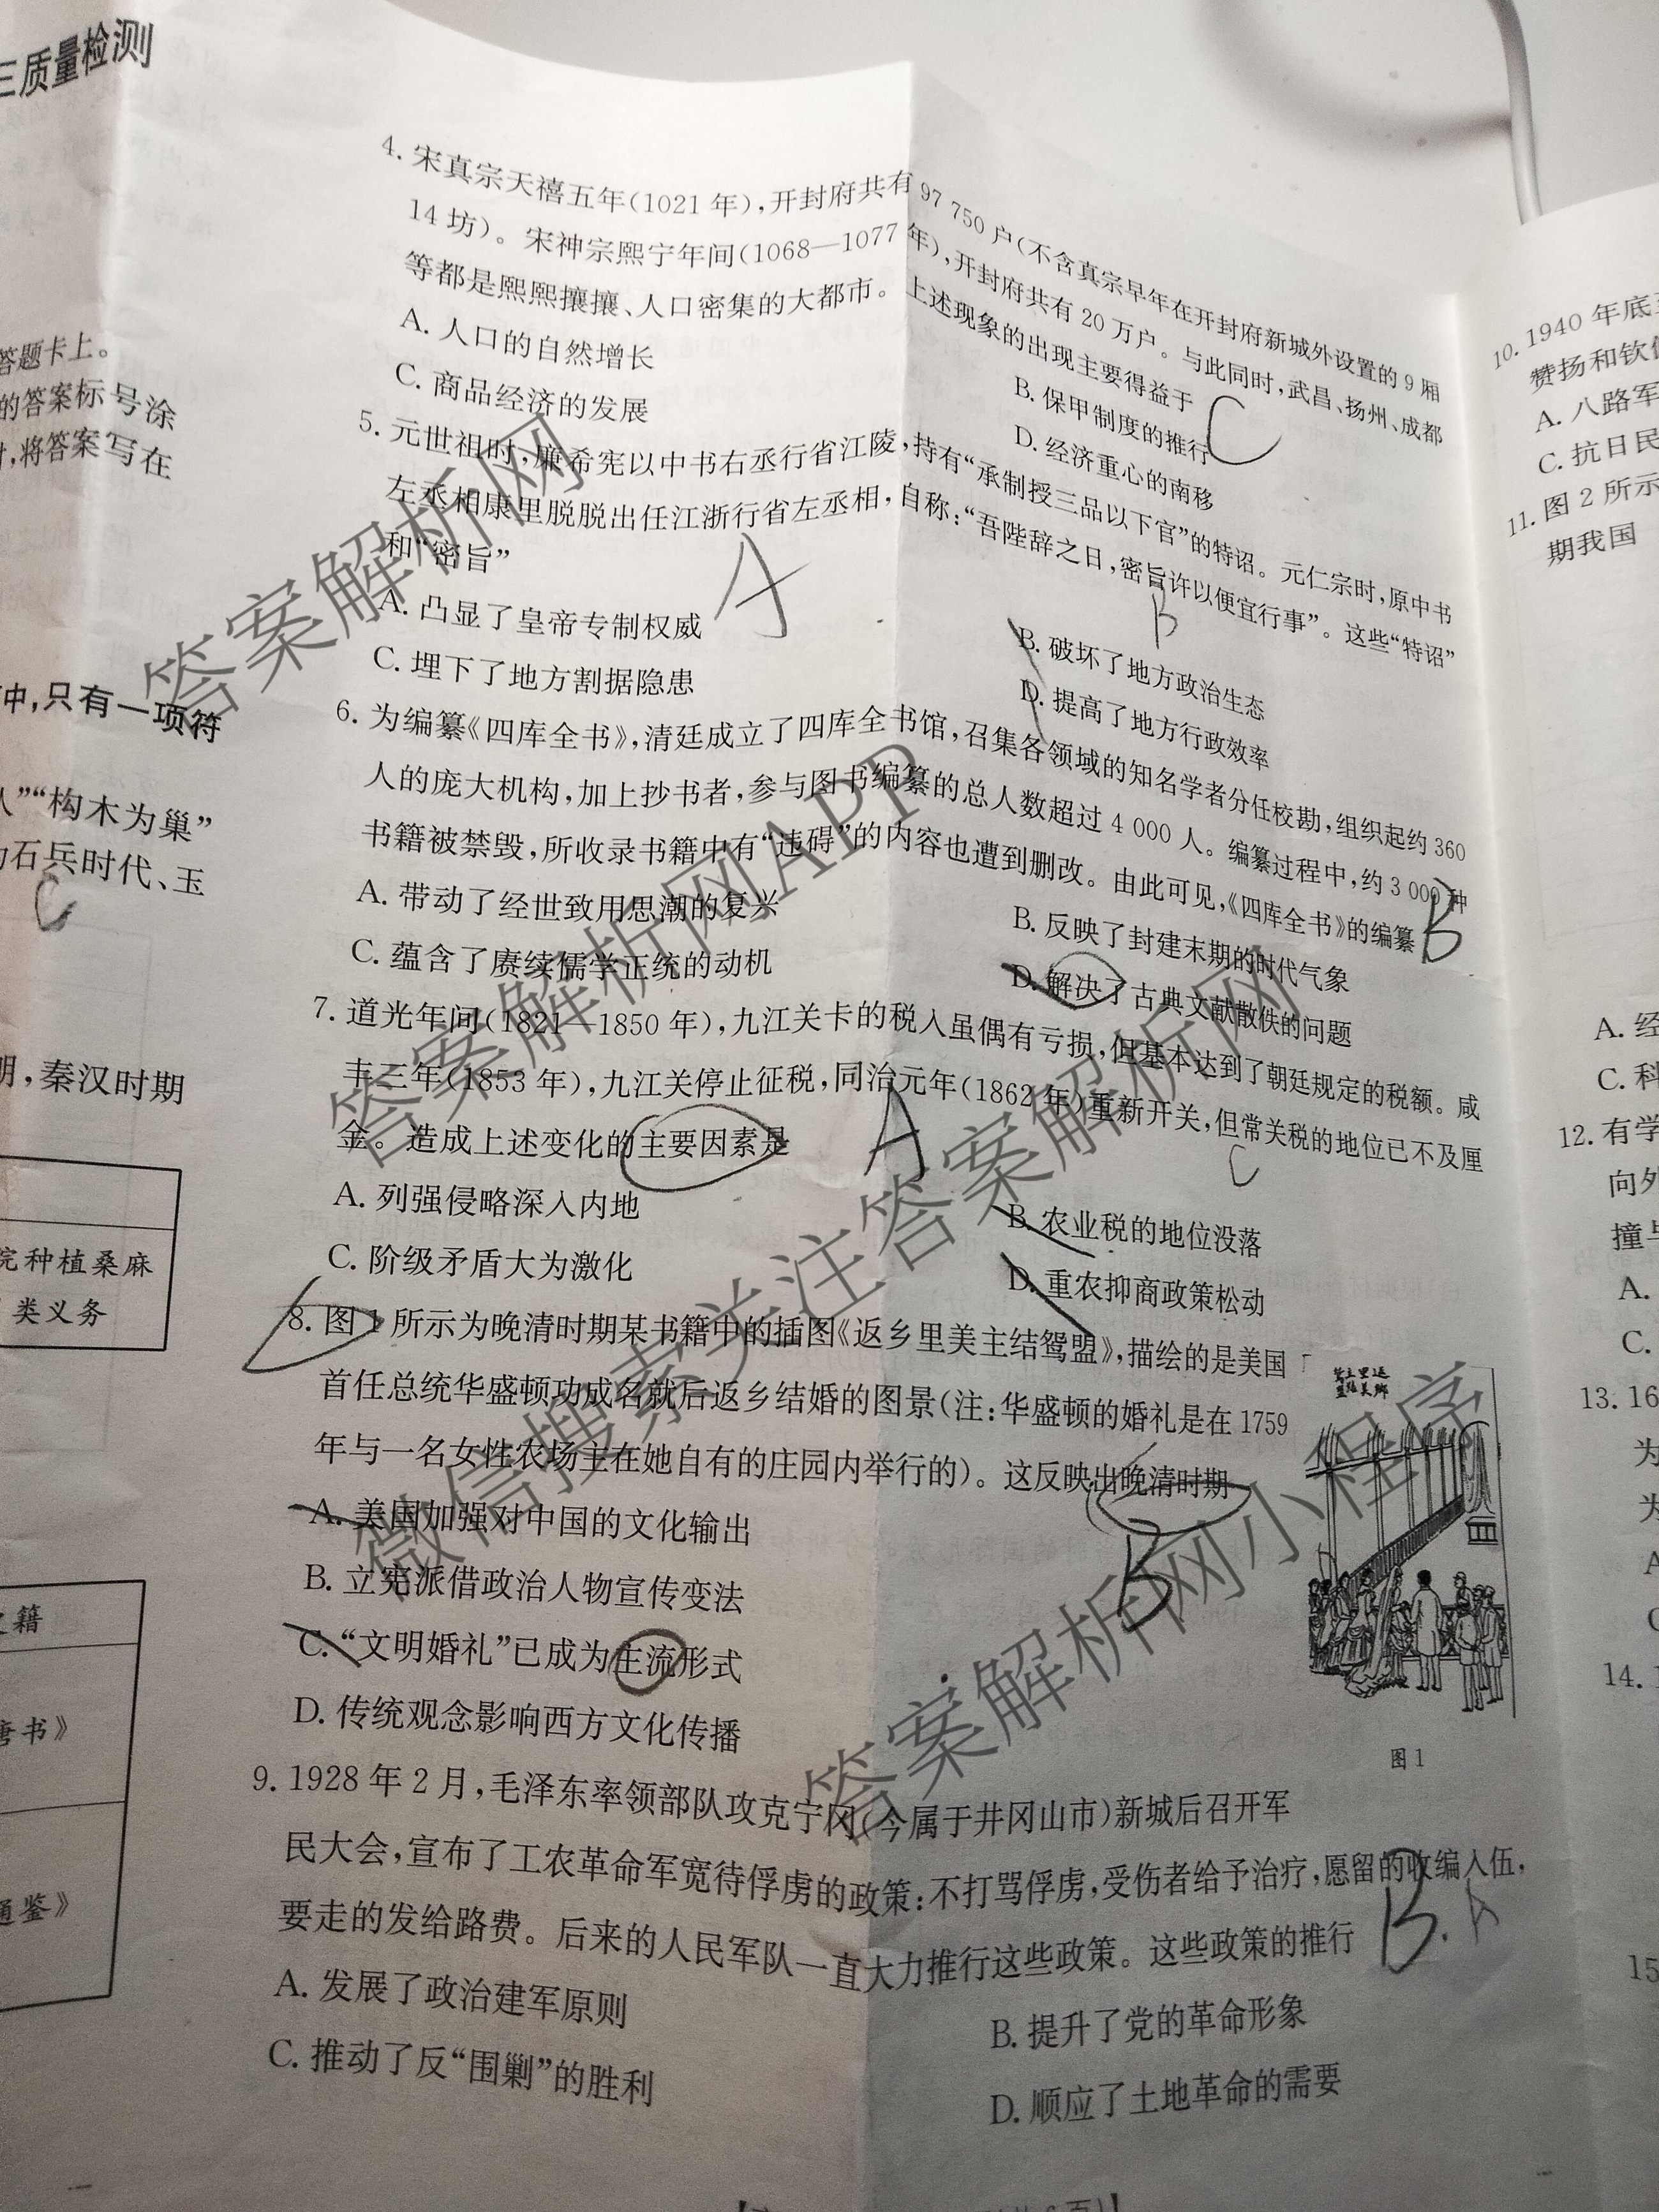 三质量检测
答题卡上。
的答案标号涂
时,将答案写在
中,只有一项符
人”“构木为巢”
石兵时代、玉
C
明,秦汉时期
院种植桑麻
类义务
之籍
唐书》
通鉴》
4. 宋真宗天禧五年(1021 年),开封府共有 97 750 户(不含真宗早年在开封府新城外设置的 9 厢
14 坊)。宋神宗熙宁年间(1068—1077 年),开封府共有 20 万户。与此同时,武昌、扬州、成都
等都是熙熙攘攘、人口密集的大都市。上述现象的出现主要得益于
C
A. 人口的自然增长
B. 保甲制度的推行
C. 商品经济的发展
D. 经济重心的南移
5. 元世祖时,廉希宪以中书右丞行省江陵,持有“承制授三品以下官”的特诏。元仁宗时,原中书
左丞相康里脱脱出任江浙行省左丞相,自称:“吾陛辞之日,密旨许以便宜行事”。这些“特诏”
和“密旨”
B
A. 凸显了皇帝专制权威
B. 破坏了地方政治生态
C. 埋下了地方割据隐患
D. 提高了地方行政效率
6. 为编纂《四库全书》,清廷成立了四库全书馆,召集各领域的知名学者分任校勘,组织起约 360
人的庞大机构,加上抄书者,参与图书编纂的总人数超过 4 000 人。编纂过程中,约 3 000 种
书籍被禁毁,所收录书籍中有“违碍”的内容也遭到删改。由此可见,《四库全书》的编纂
B
A. 带动了经世致用思潮的复兴
B. 反映了封建末期的时代气象
C. 蕴含了赓续儒学正统的动机
D. 解决了古典文献散佚的问题
7. 道光年间(1821—1850 年),九江关卡的税入虽偶有亏损,但基本达到了朝廷规定的税额。咸
丰三年(1853 年),九江关停止征税,同治元年(1862 年)重新开关,但常关税的地位已不及厘
金。造成上述变化的主要因素是
A
C
A. 列强侵略深入内地
B. 农业税的地位没落
C. 阶级矛盾大为激化
D. 重农抑商政策松动
8. 图 1 所示为晚清时期某书籍中的插图《返乡里美主结鸳盟》,描绘的是美国
首任总统华盛顿功成名就后返乡结婚的图景(注:华盛顿的婚礼是在 1759
年与一名女性农场主在她自有的庄园内举行的)。这反映出晚清时期
B
A. 美国加强对中国的文化输出
B. 立宪派借政治人物宣传变法
C. “文明婚礼”已成为主流形式
D. 传统观念影响西方文化传播
图 1
9. 1928 年 2 月,毛泽东率领部队攻克宁冈(今属于井冈山市)新城后召开军
民大会,宣布了工农革命军宽待俘虏的政策:不打骂俘虏,受伤者给予治疗,愿留的收编入伍,
要走的发给路费。后来的人民军队一直大力推行这些政策。这些政策的推行
B. A
A. 发展了政治建军原则
B. 提升了党的革命形象
C. 推动了反“围剿”的胜利
D. 顺应了土地革命的需要
10. 1940 年底
赞扬和钦
A. 八路军
C. 抗日民
11. 图 2 所示
期我国
A. 经
C. 科
12. 有学
向外
撞
A.
C.
13. 16
为
为
14.
15
答案解析网
答案解析网APP
微信搜索关注答案解析网
答案解析网小程序